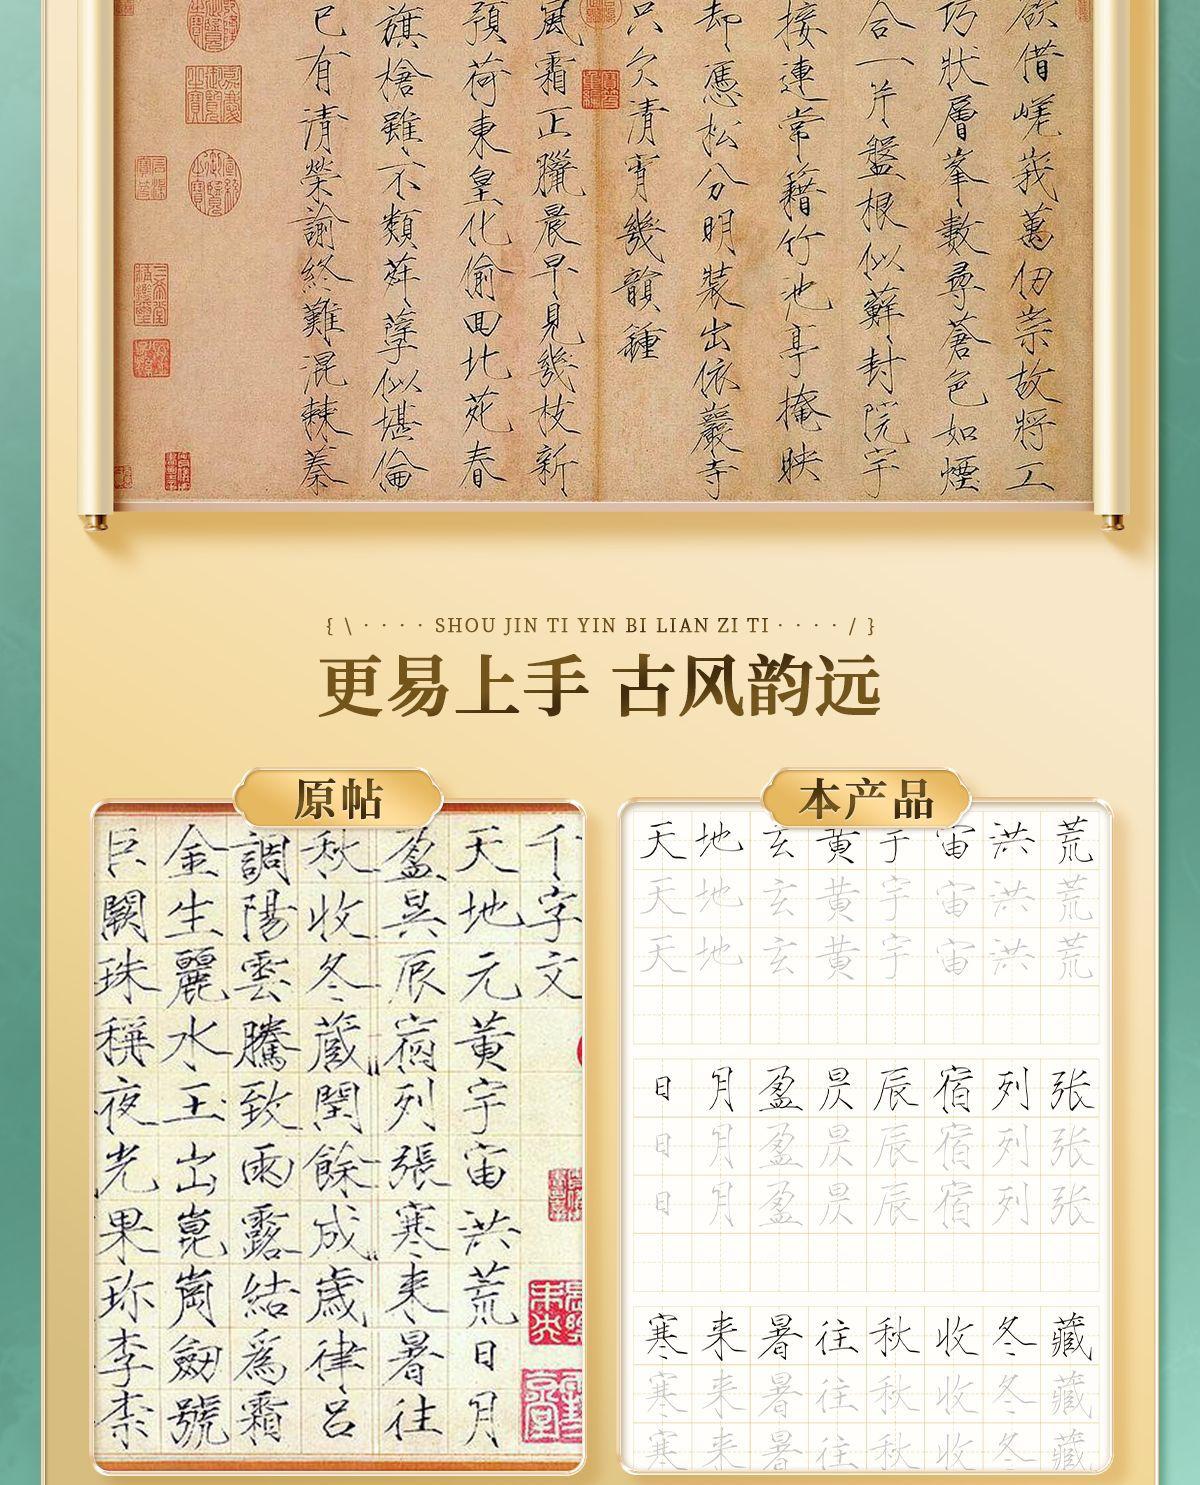 欲借嵯峨萬仞崇故將工
巧狀層峯數尋蒼色如煙
合一片盤根似蘚封院宇
接連常籍竹池亭掩映
却憑松分明裝出依巖寺
只欠清宵幾韻鍾
風霜正臘晨早見幾枝新
預荷東皇化偷回北苑春
旗槍雖不類荈孽似堪倫
已有清榮諭終難混棘蓁
{ \ · · · · SHOU JIN TI YIN BI LIAN ZI TI · · · · / }
更易上手 古风韵远
原帖
千字文
天地元黄宇宙洪荒日月
盈昃辰宿列張寒来暑往
秋收冬蔵閏餘成歲律吕
調陽雲騰致雨露結爲霜
金生麗水玉出崑崗劒號
巨闕珠稱夜光果珎李柰
本产品
天地玄黄宇宙洪荒
天地玄黄宇宙洪荒
天地玄黄宇宙洪荒
日月盈昃辰宿列张
日月盈昃辰宿列张
日月盈昃辰宿列张
寒来暑往秋收冬藏
寒来暑往秋收冬藏
寒来暑往秋收冬藏